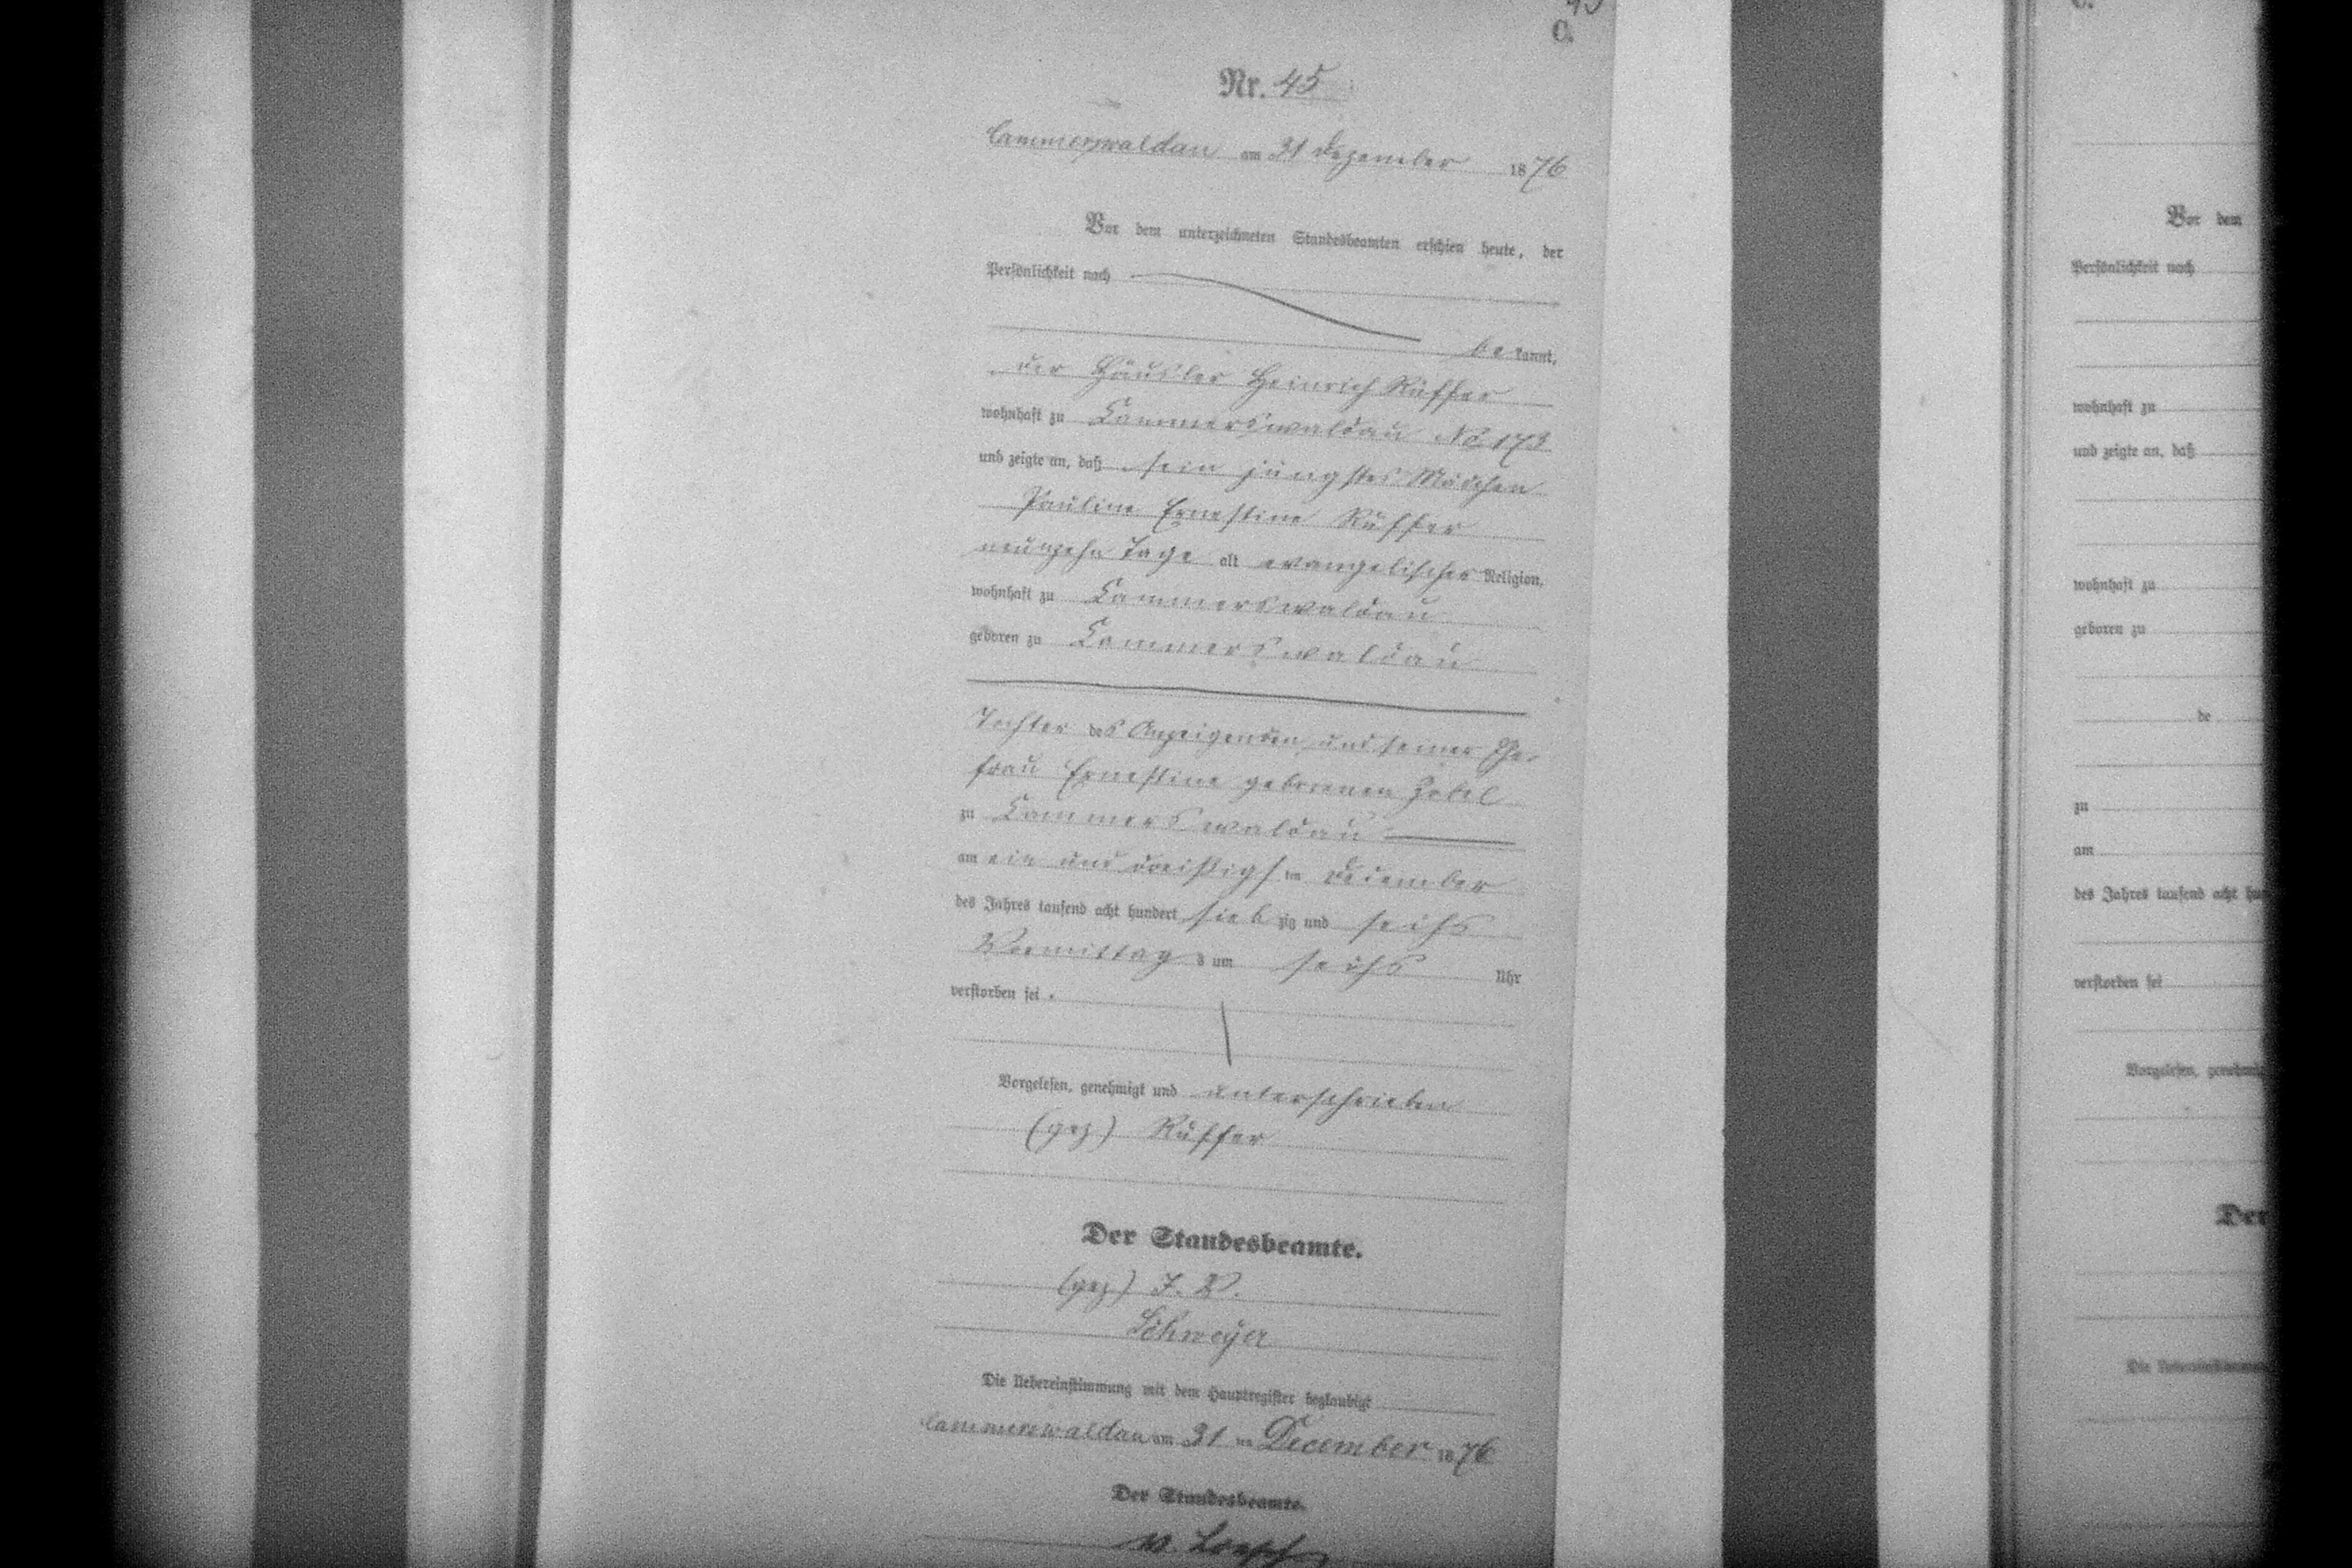 C.
Nr. 45
Cammerswaldau am 31 Dezember 1876
Vor dem unterzeichneten Standesbeamten erschien heute, der
Persönlichkeit nach
be kannt,
der Häusler Heinrich Rüffer
wohnhaft zu Cammerswaldau No 173
und zeigte an, daß sein jüngstes Mädchen
Pauline Ernestine Rüffer
neunzehn Tage alt evangelischer Religion,
wohnhaft zu Cammerswaldau
geboren zu Cammerswaldau
Tochter des Anzeigenden und seiner Ehe-
frau Ernestine geborenen Zobel
zu Cammerswaldau
am ein und dreißigsten December
des Jahres tausend acht hundert sieb zig und sechs
Vormittag s um sechs Uhr
verstorben sei.
Vorgelesen, genehmigt und unterschrieben
(gez) Rüffer
Der Standesbeamte.
(gez) I. V.
Schweyer
Die Uebereinstimmung mit dem Hauptregister beglaubigt
Cammerswaldau am 31 ten December 1876
Der Standesbeamte.
C.
Vor dem
Persönlichkeit nach
wohnhaft zu
und zeigte an, daß
wohnhaft zu
geboren zu
de
zu
am
des Jahres tausend acht
verstorben sei
Vorgelesen,
Der
Die